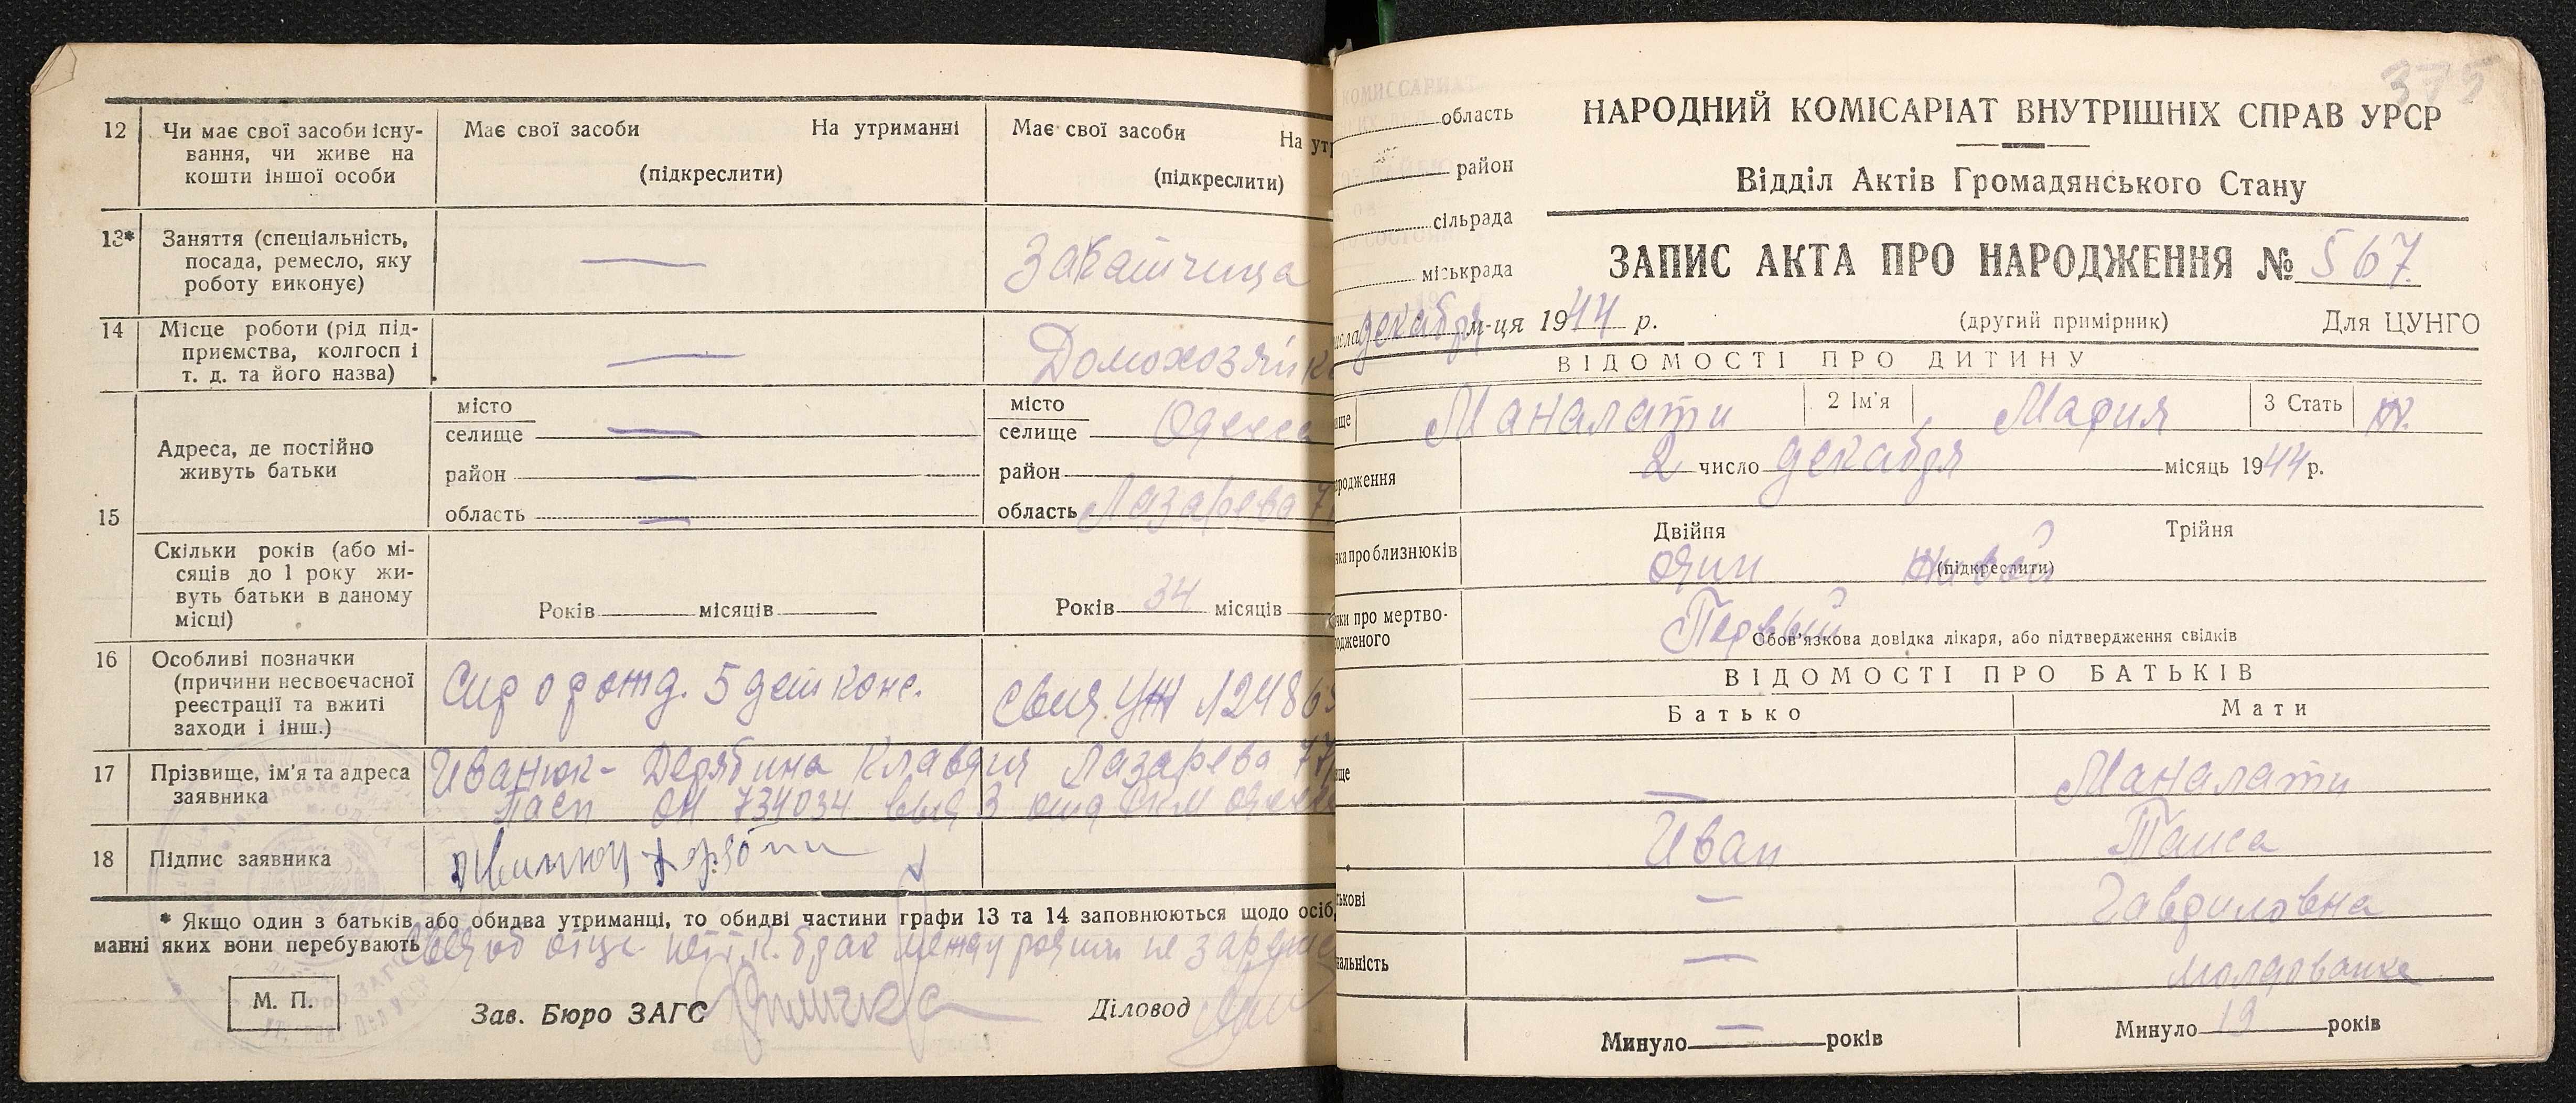 12 Чи має свої засоби існу-
вання, чи живе на
кошти іншої особи
Має свої засоби На утриманні
(підкреслити)
Має свої засоби На утр
(підкреслити)
13* Заняття (спеціальність,
посада, ремесло, яку
роботу виконує)
—
Закатчица
14 Місце роботи (рід під-
приємства, колгосп і
т. д. та його назва)
—
Домохозяйка
15
Адреса, де постійно
живуть батьки
місто
селище —
район —
область —
місто
селище Одесса
район
область Лазарева 7
Скільки років (або мі-
сяців до 1 року жи-
вуть батьки в даному
місці)
Років місяців
Років 34 місяців
16 Особливі позначки
(причини несвоєчасної
реєстрації та вжиті
заходи і інш.)
5 дет конс.
УЖ
17 Прізвище, ім'я та адреса
заявника
Иванюк- Дерябина Клавдия Лазарева 77
Пасп ОН 734034 выд 3
18 Підпис заявника
* Якщо один з батьків або обидва утриманці, то обидві частини графи 13 та 14 заповнюються щодо осіб,
манні яких вони перебувають
нет т.к. брак между родит не зареги
М. П.
Зав. Бюро ЗАГС
Діловод
375
область
район
сільрада
міськрада
НАРОДНИЙ КОМІСАРІАТ ВНУТРІШНІХ СПРАВ УРСР
Відділ Актів Громадянського Стану
ЗАПИС АКТА ПРО НАРОДЖЕННЯ № 567.
исла декабря м-ця 1944 р.
(другий примірник) Для ЦУНГО
ВІДОМОСТІ ПРО ДИТИНУ
ище Маналати 2 Ім'я Мария 3 Стать ж.
ародження 2 число декабря місяць 1944 р.
чка про близнюків
Двійня Трійня
один Живой
(підкреслити)
чки про мертво-
одженого
Первый
Обов'язкова довідка лікаря, або підтвердження свідків
ВІДОМОСТІ ПРО БАТЬКІВ
Батько Мати
ище — Маналати
Иван Таиса
ькові — Гавриловна
нальність — молдованка
Минуло — років
Минуло 19 років